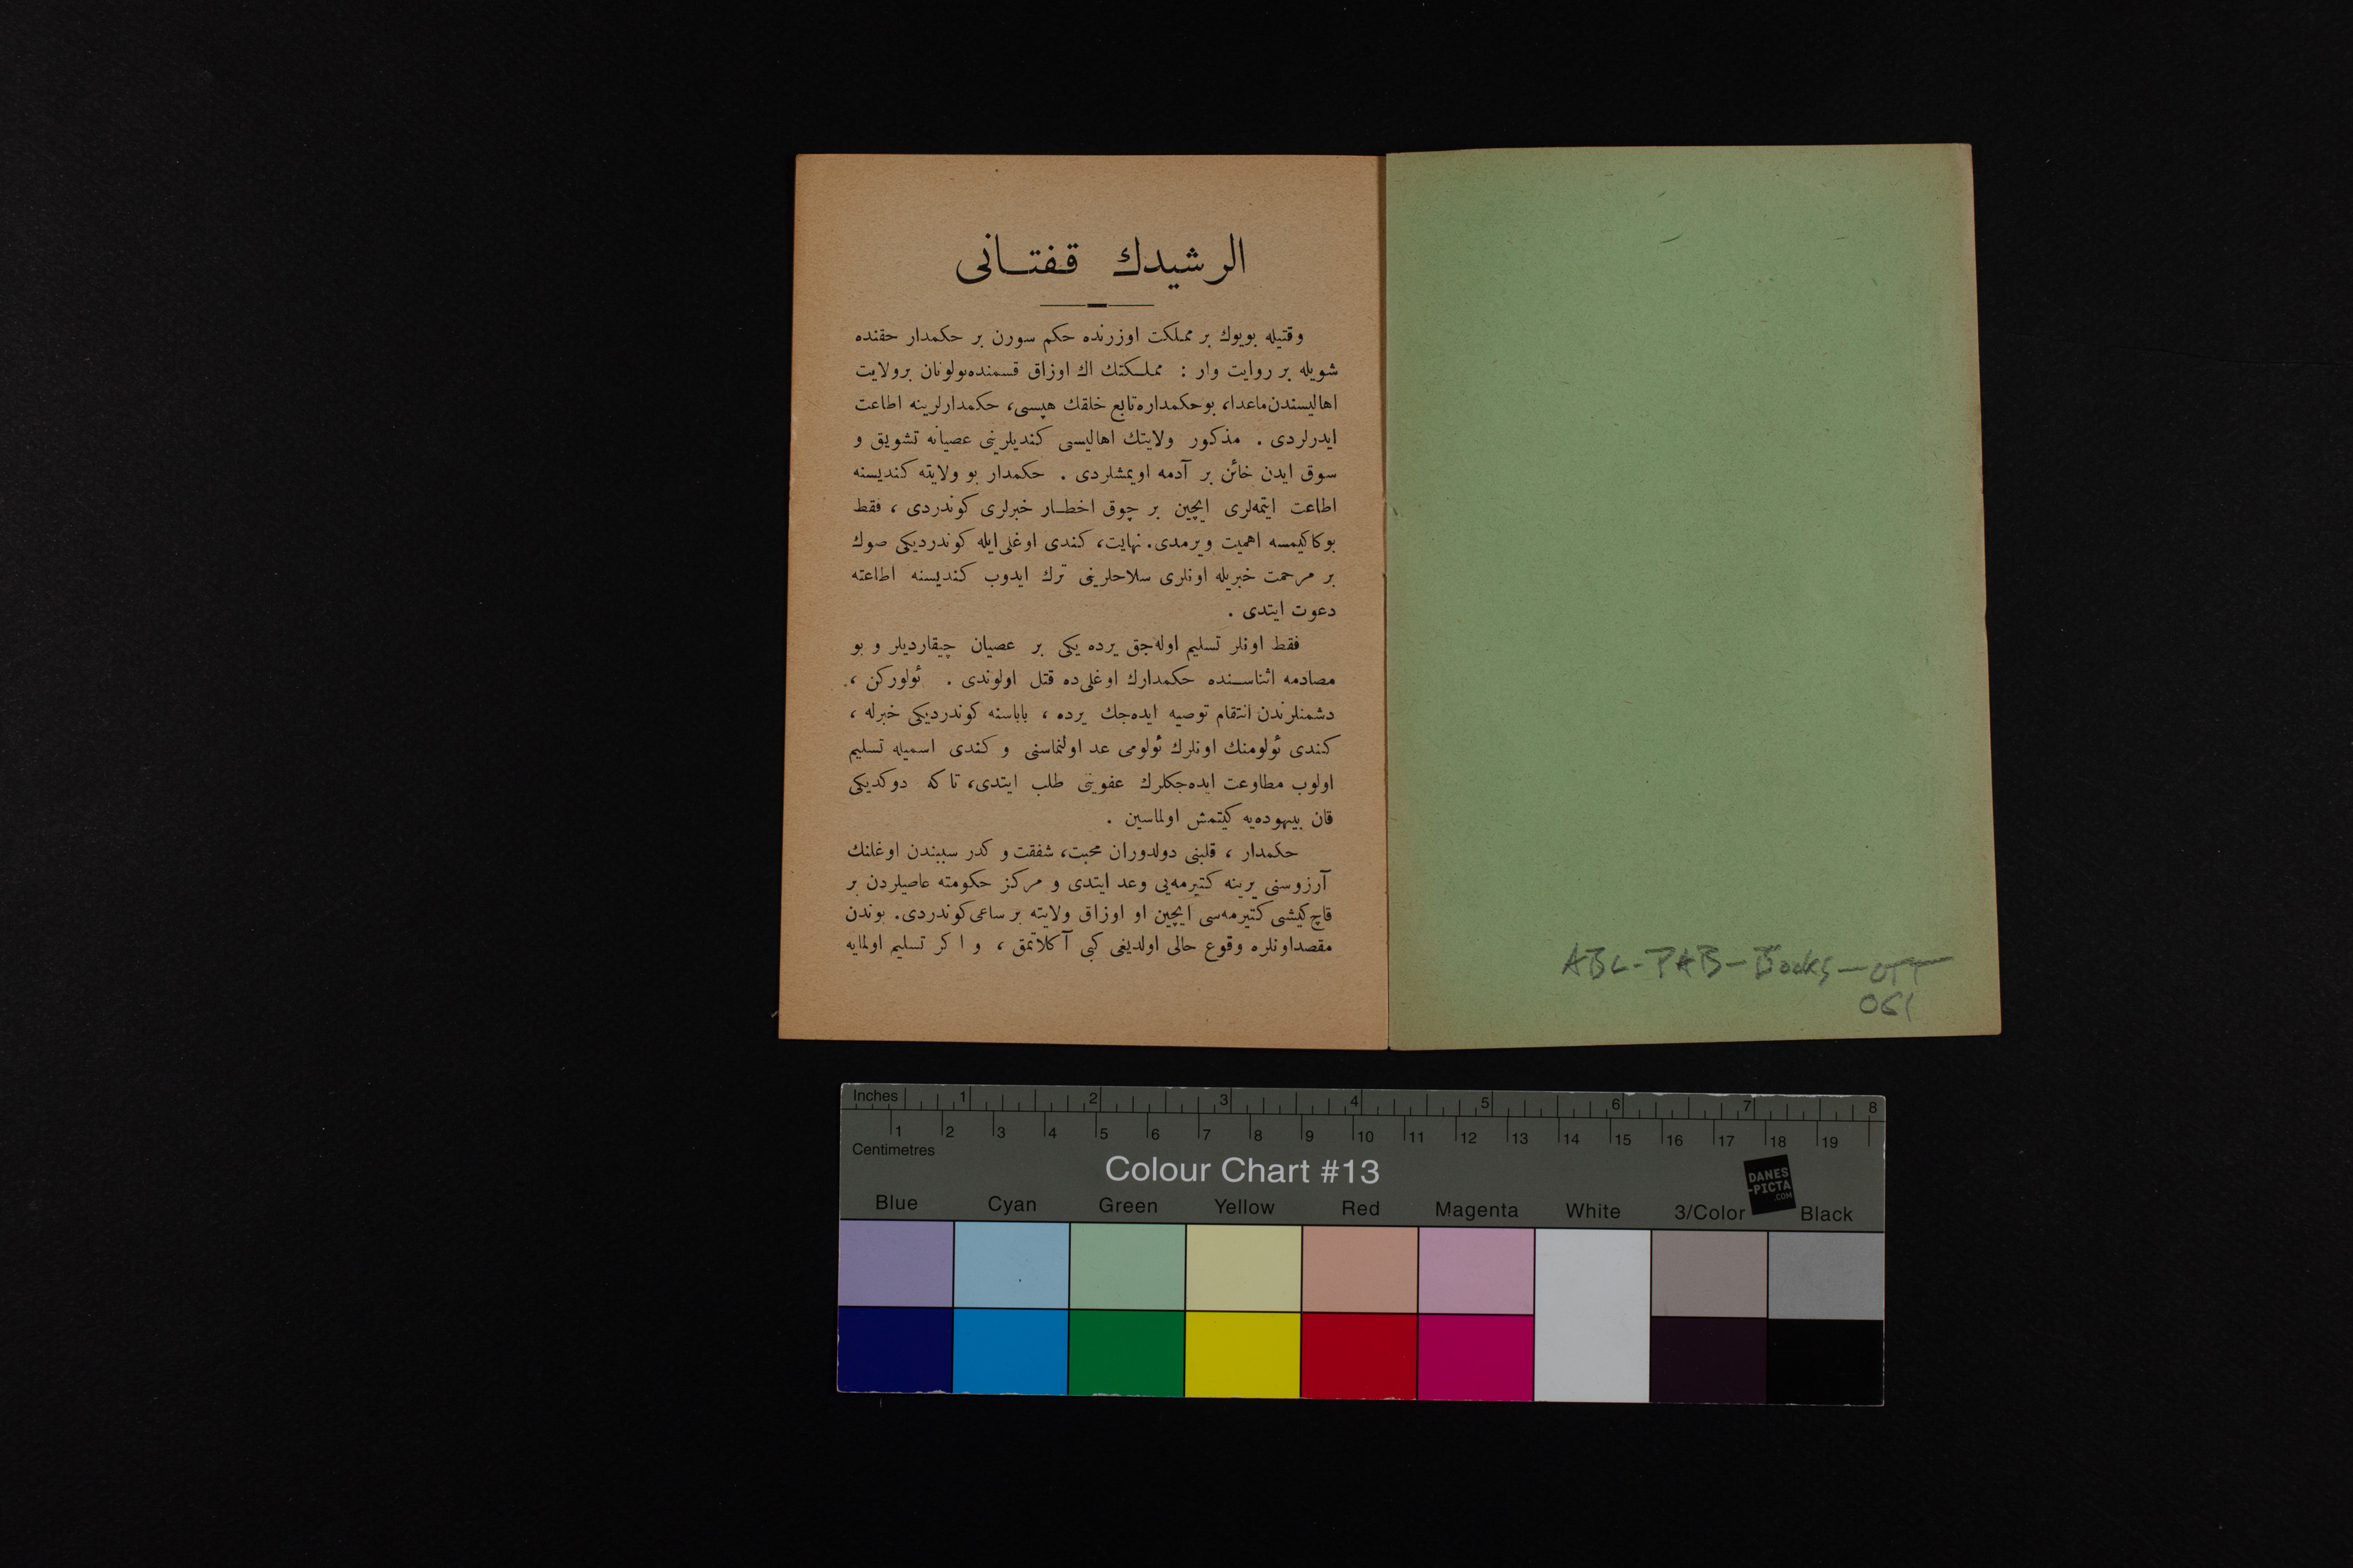 الرشیدك قفتـانی
وقتیله بویوك بر مملكت اوزرنده حكم سورن بر حكمدار حقنده
شویله بر روایت وار : مملـكتك اك اوزاق قسمنده بولونان برولایت
اهالیسندن ماعدا، بو حكمداره تابع خلقك هپسی، حكمدارلرینه اطاعت
ایدرلردی . مذكور ولایتك اهالیسی كندیلرینی عصیانه تشویق و
سوق ایدن خائن بر آدمه اویمشلردی . حكمدار بو ولایته كندیسنه
اطاعت ایتمه‌لری ایچین بر چوق اخطـار خبرلری كوندردی ، فقط
بوكا كیمسه اهمیت ویرمدی. نهایت، كندی اوغلی ایله كوندردیكی صوك
بر مرحمت خبریله اونلری سلاحلرینی ترك ایدوب كندیسنه اطاعته
دعوت ایتدی .
فقط اونلر تسلیم اوله‌جق یرده یكی بر عصیان چیقاردیلر و بو
مصادمه اثناسـنده حكمدارك اوغلی ده قتل اولوندی . ئولوركن ،
دشمنلرندن انتقام توصیه ایده‌جك یرده ، باباسنه كوندردیكی خبرله ،
كندی ئولومنك اونلرك ئولومی عد اولنماسنی و كندی اسمیله تسلیم
اولوب مطاوعت ایده‌جكلرك عفوینی طلب ایتدی، تا كه دوكدیكی
قان بیهوده‌یه كیتمش اولماسین .
حكمدار ، قلبنی دولدوران محبت، شفقت و كدر سببندن اوغلنك
آرزوسنی یرینه كتیرمه‌یی وعد ایتدی و مركز حكومته عاصیلردن بر
قاچ كیشی كتیرمه‌سی ایچین او اوزاق ولایته بر ساعی كوندردی. بوندن
مقصد اونلره وقوع حالی اولدیغی كبی آكلاتمق ، و اكر تسلیم اولمایه
ABL-PAB-Books-OTT
061
Inches 1 2 3 4 5 6 7 8
1 2 3 4 5 6 7 8 9 10 11 12 13 14 15 16 17 18 19
Centimetres
Colour Chart #13
DANES
-PICTA
.COM
Blue Cyan Green Yellow Red Magenta White 3/Color Black